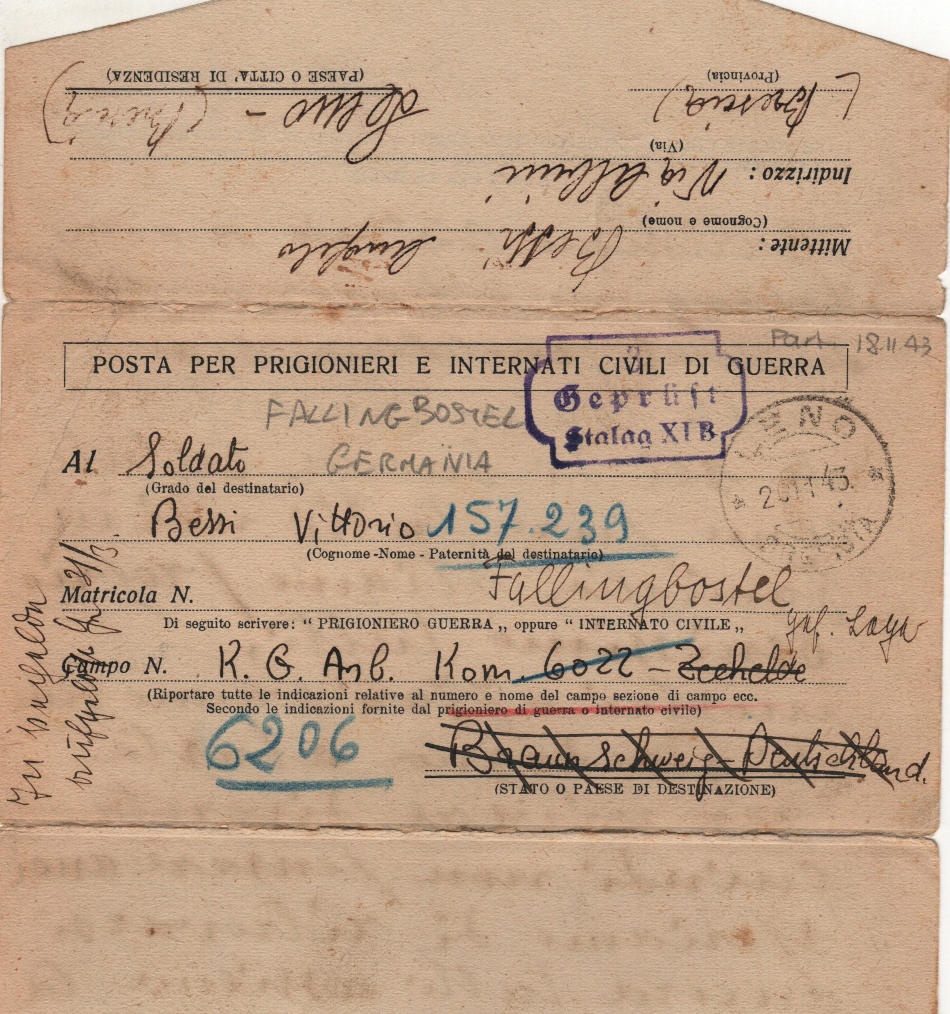 (PAESE O CITTA' DI RESIDENZA)
(Provincia)
Leno - (Brescia)
(Brescia)
(Via)
Indirizzo: Via Albini
(Cognome e nome)
Mittente: Bessi Angelo
Part. 18 11 43
POSTA PER PRIGIONIERI E INTERNATI CIVILI DI GUERRA
2
Geprüft
Stalag XI B
FALLINGBOSTEL
GERMANIA
LENO
BRESCIA
Al Soldato
(Grado del destinatario)
Bessi Vittorio 157.239
(Cognome - Nome - Paternità del destinatario)
Matricola N. Fallingbostel
Di seguito scrivere: " PRIGIONIERO GUERRA „ oppure " INTERNATO CIVILE „
Campo N. K. G. Arb. Kom. 6022 -
(Riportare tutte le indicazioni relative al numero e nome del campo sezione di campo ecc.
Secondo le indicazioni fornite dal prigioniero di guerra o internato civile)
6206
Braunschweig - Deutschland.
(STATO O PAESE DI DESTINAZIONE)